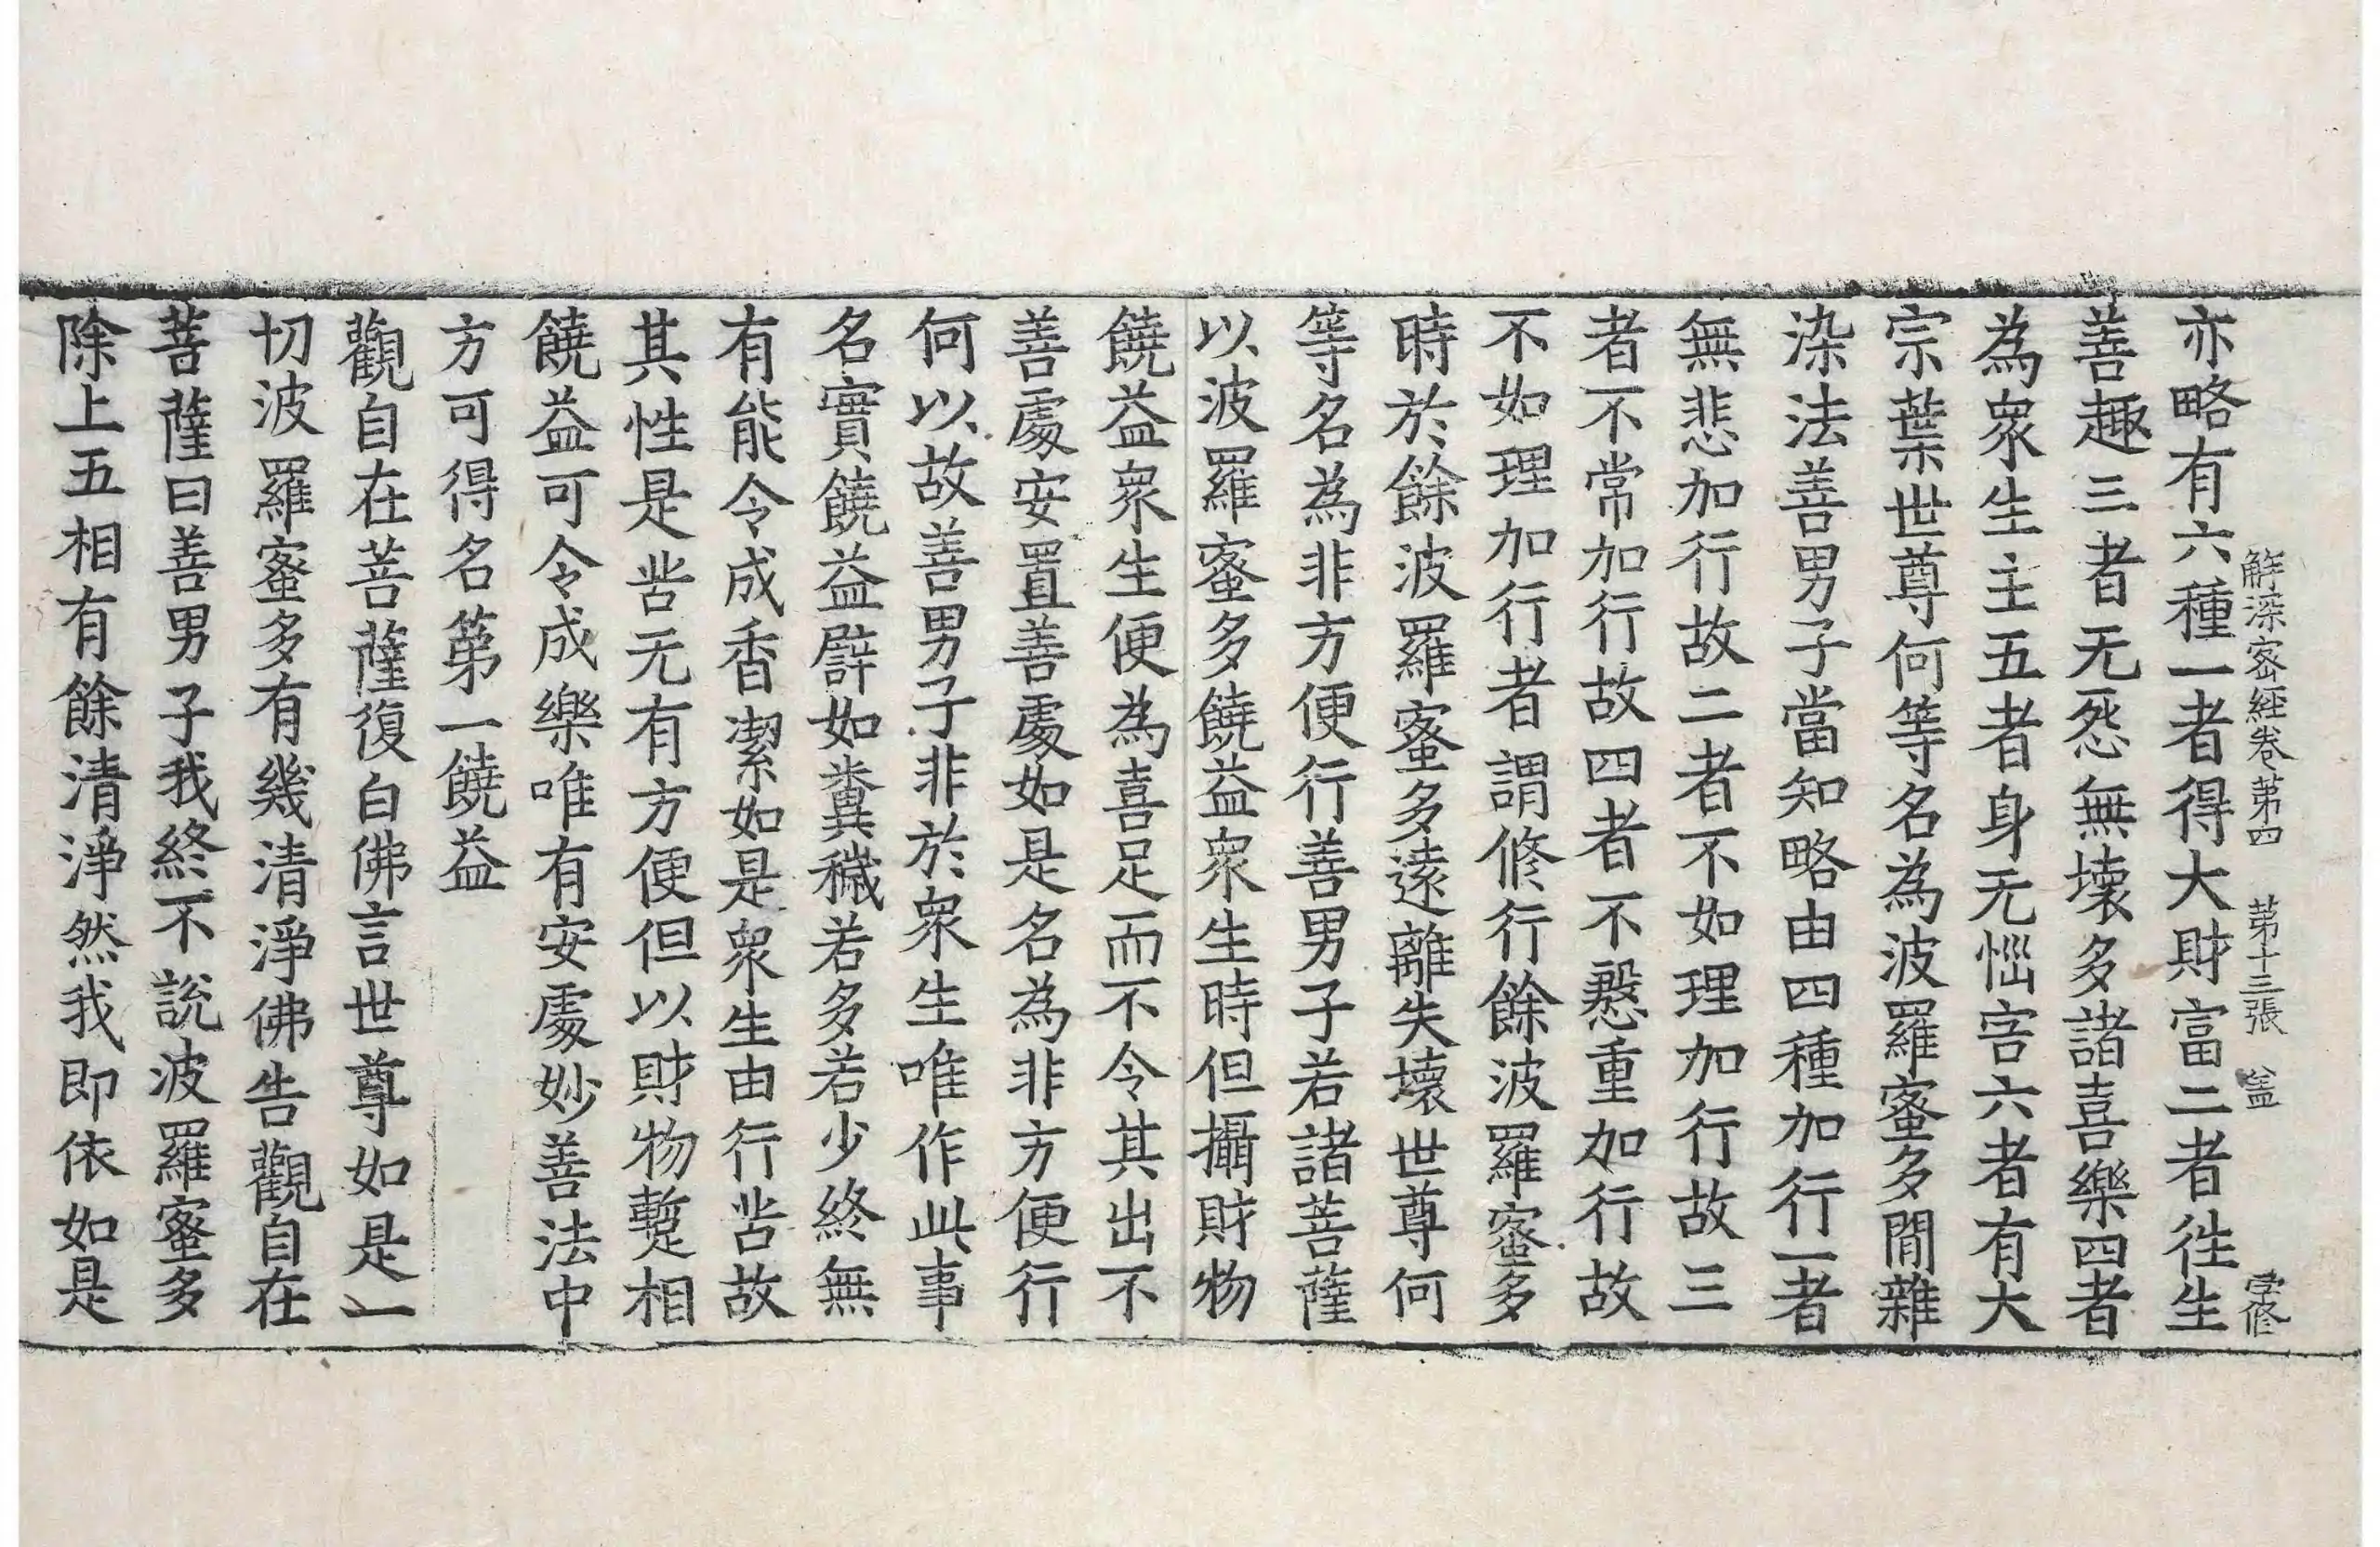 解深密經卷第四 第十三張 㿽 學修
亦略有六種一者得大財富二者徃生
善趣三者无𢙣無壞多諸喜樂四者
為衆生主五者身无惱害六者有大
宗葉世尊何等名為波羅蜜多閒雜
染法善男子當知略由四種加行一者
無悲加行故二者不如理加行故三
者不常加行故四者不慇重加行故
不如理加行者謂修行餘波羅蜜多
時於餘波羅蜜多遠離失壞世尊何
等名為非方便行善男子若諸菩薩
以波羅蜜多饒益衆生時但攝財物
饒益衆生便為喜足而不令其出不
善處安置善處如是名為非方便行
何以故善男子非於衆生唯作此事
名實饒益譬如糞穢若多若少終無
有能令成香潔如是衆生由行苦故
其性是苦无有方便但以財物暫相
饒益可令成樂唯有安處妙善法中
方可得名第一饒益
觀自在菩薩復白佛言世尊如是一
切波羅蜜多有幾清淨佛告觀自在
菩薩曰善男子我終不說波羅蜜多
除上五相有餘清淨然我即依如是